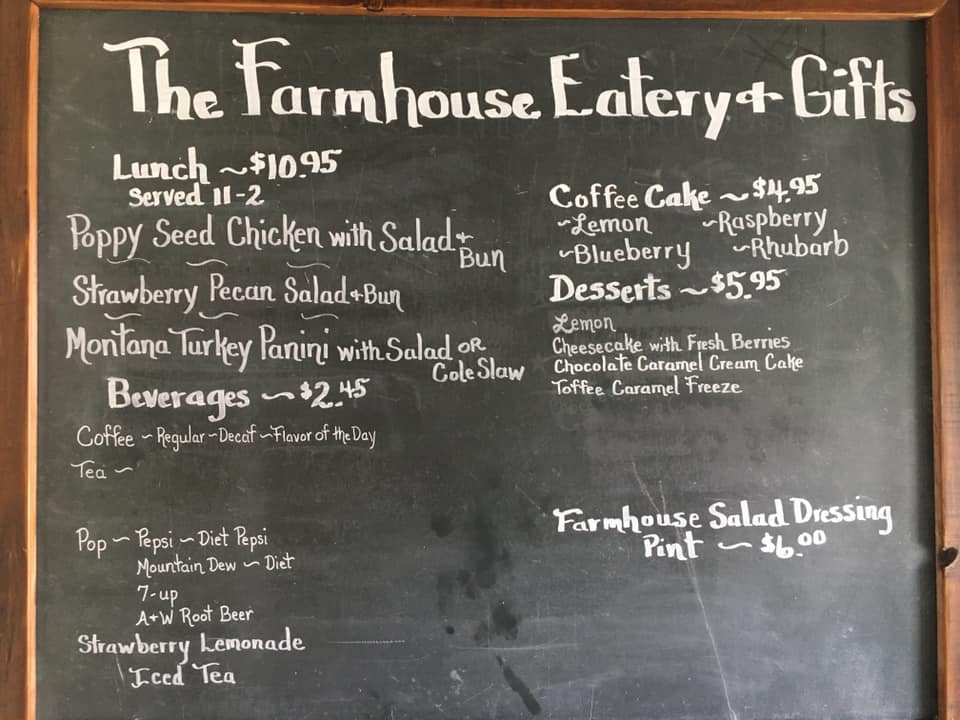 The Farmhouse Eatery + Gifts
Lunch ~ $10.95
Served 11-2
Poppy Seed Chicken with Salad +
Bun
Strawberry Pecan Salad + Bun
Montana Turkey Panini with Salad OR
Cole Slaw
Beverages ~ $2.45
Coffee ~ Regular ~ Decaf ~ Flavor of the Day
Tea ~
Pop ~ Pepsi ~ Diet Pepsi
Mountain Dew ~ Diet
7-up
A+W Root Beer
Strawberry Lemonade
Iced Tea
Coffee Cake ~ $4.95
~Lemon ~Raspberry
~Blueberry ~Rhubarb
Desserts ~ $5.95
Lemon
Cheesecake with Fresh Berries
Chocolate Caramel Cream Cake
Toffee Caramel Freeze
Farmhouse Salad Dressing
Pint ~ $6.00